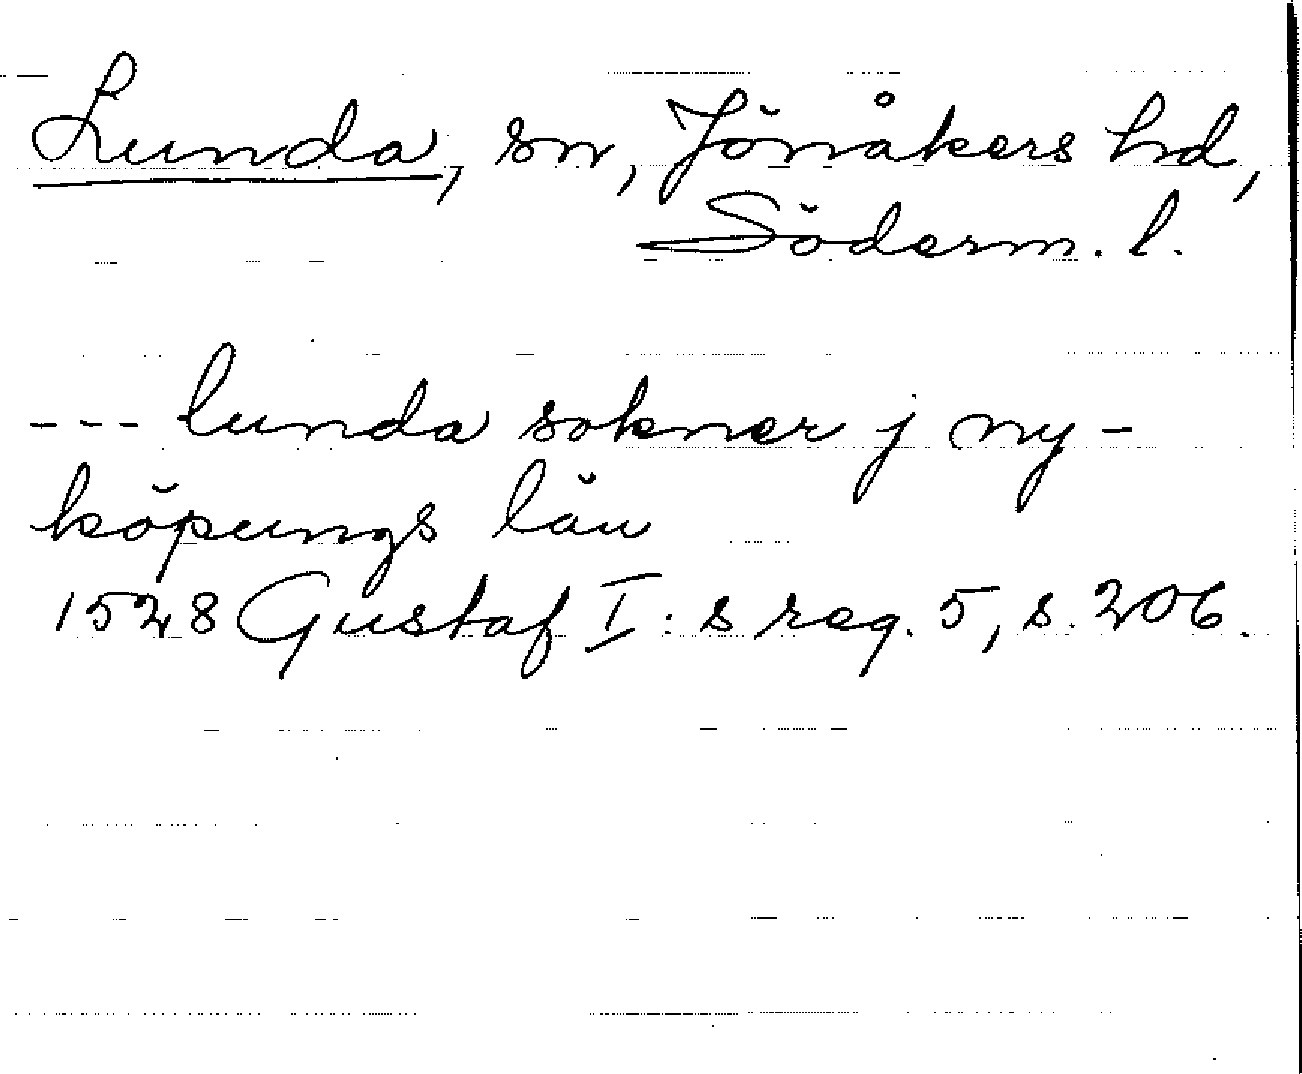 Lunda, sn, Jönåkers hd,
Söderm. l.
--- lunda sokner j ny-
köpungs län
1528 Gustaf I:s reg. 5, s. 206.